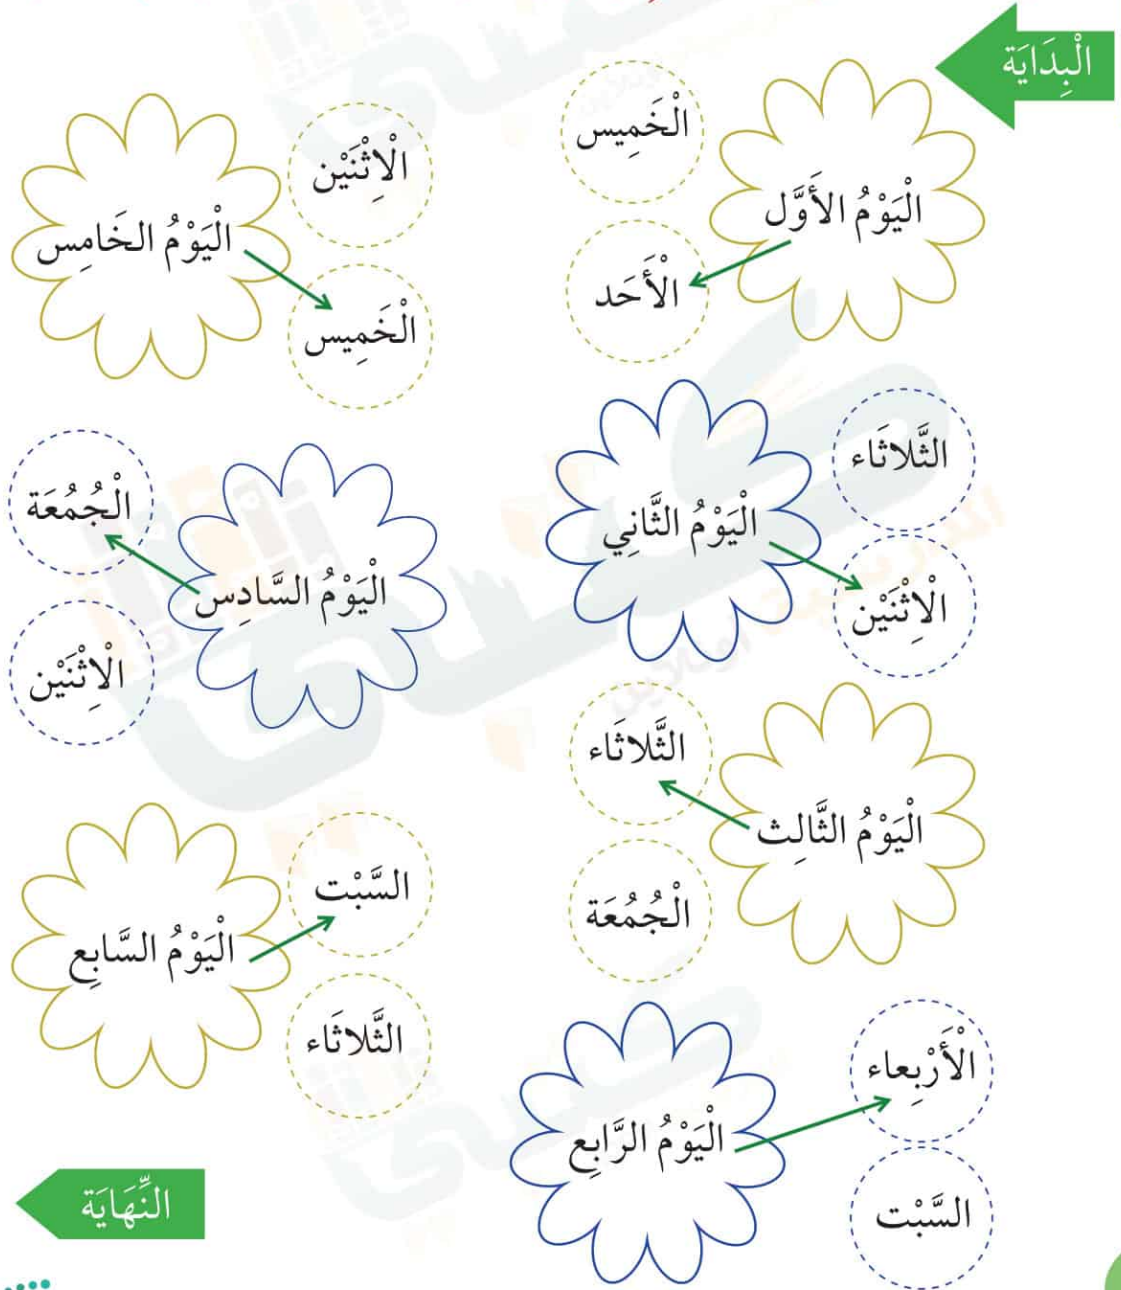 الْبِدَايَة
الْيَوْمُ الأَوَّل
الْخَمِيس
الْأَحَد
الْيَوْمُ الثَّانِي
الثَّلاثَاء
الْاِثْنَيْن
الْيَوْمُ الثَّالِث
الثَّلاثَاء
الْجُمُعَة
الْيَوْمُ الرَّابِع
الْأَرْبِعاء
السَّبْت
الْيَوْمُ الخَامِس
الْاِثْنَيْن
الْخَمِيس
الْيَوْمُ السَّادِس
الْجُمُعَة
الْاِثْنَيْن
الْيَوْمُ السَّابِع
السَّبْت
الثَّلاثَاء
النِّهَايَة